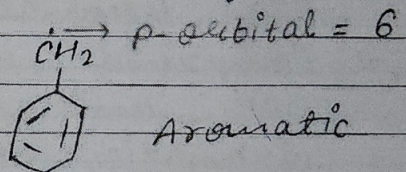 ĊH2 → p-orbital = 6
Aromatic